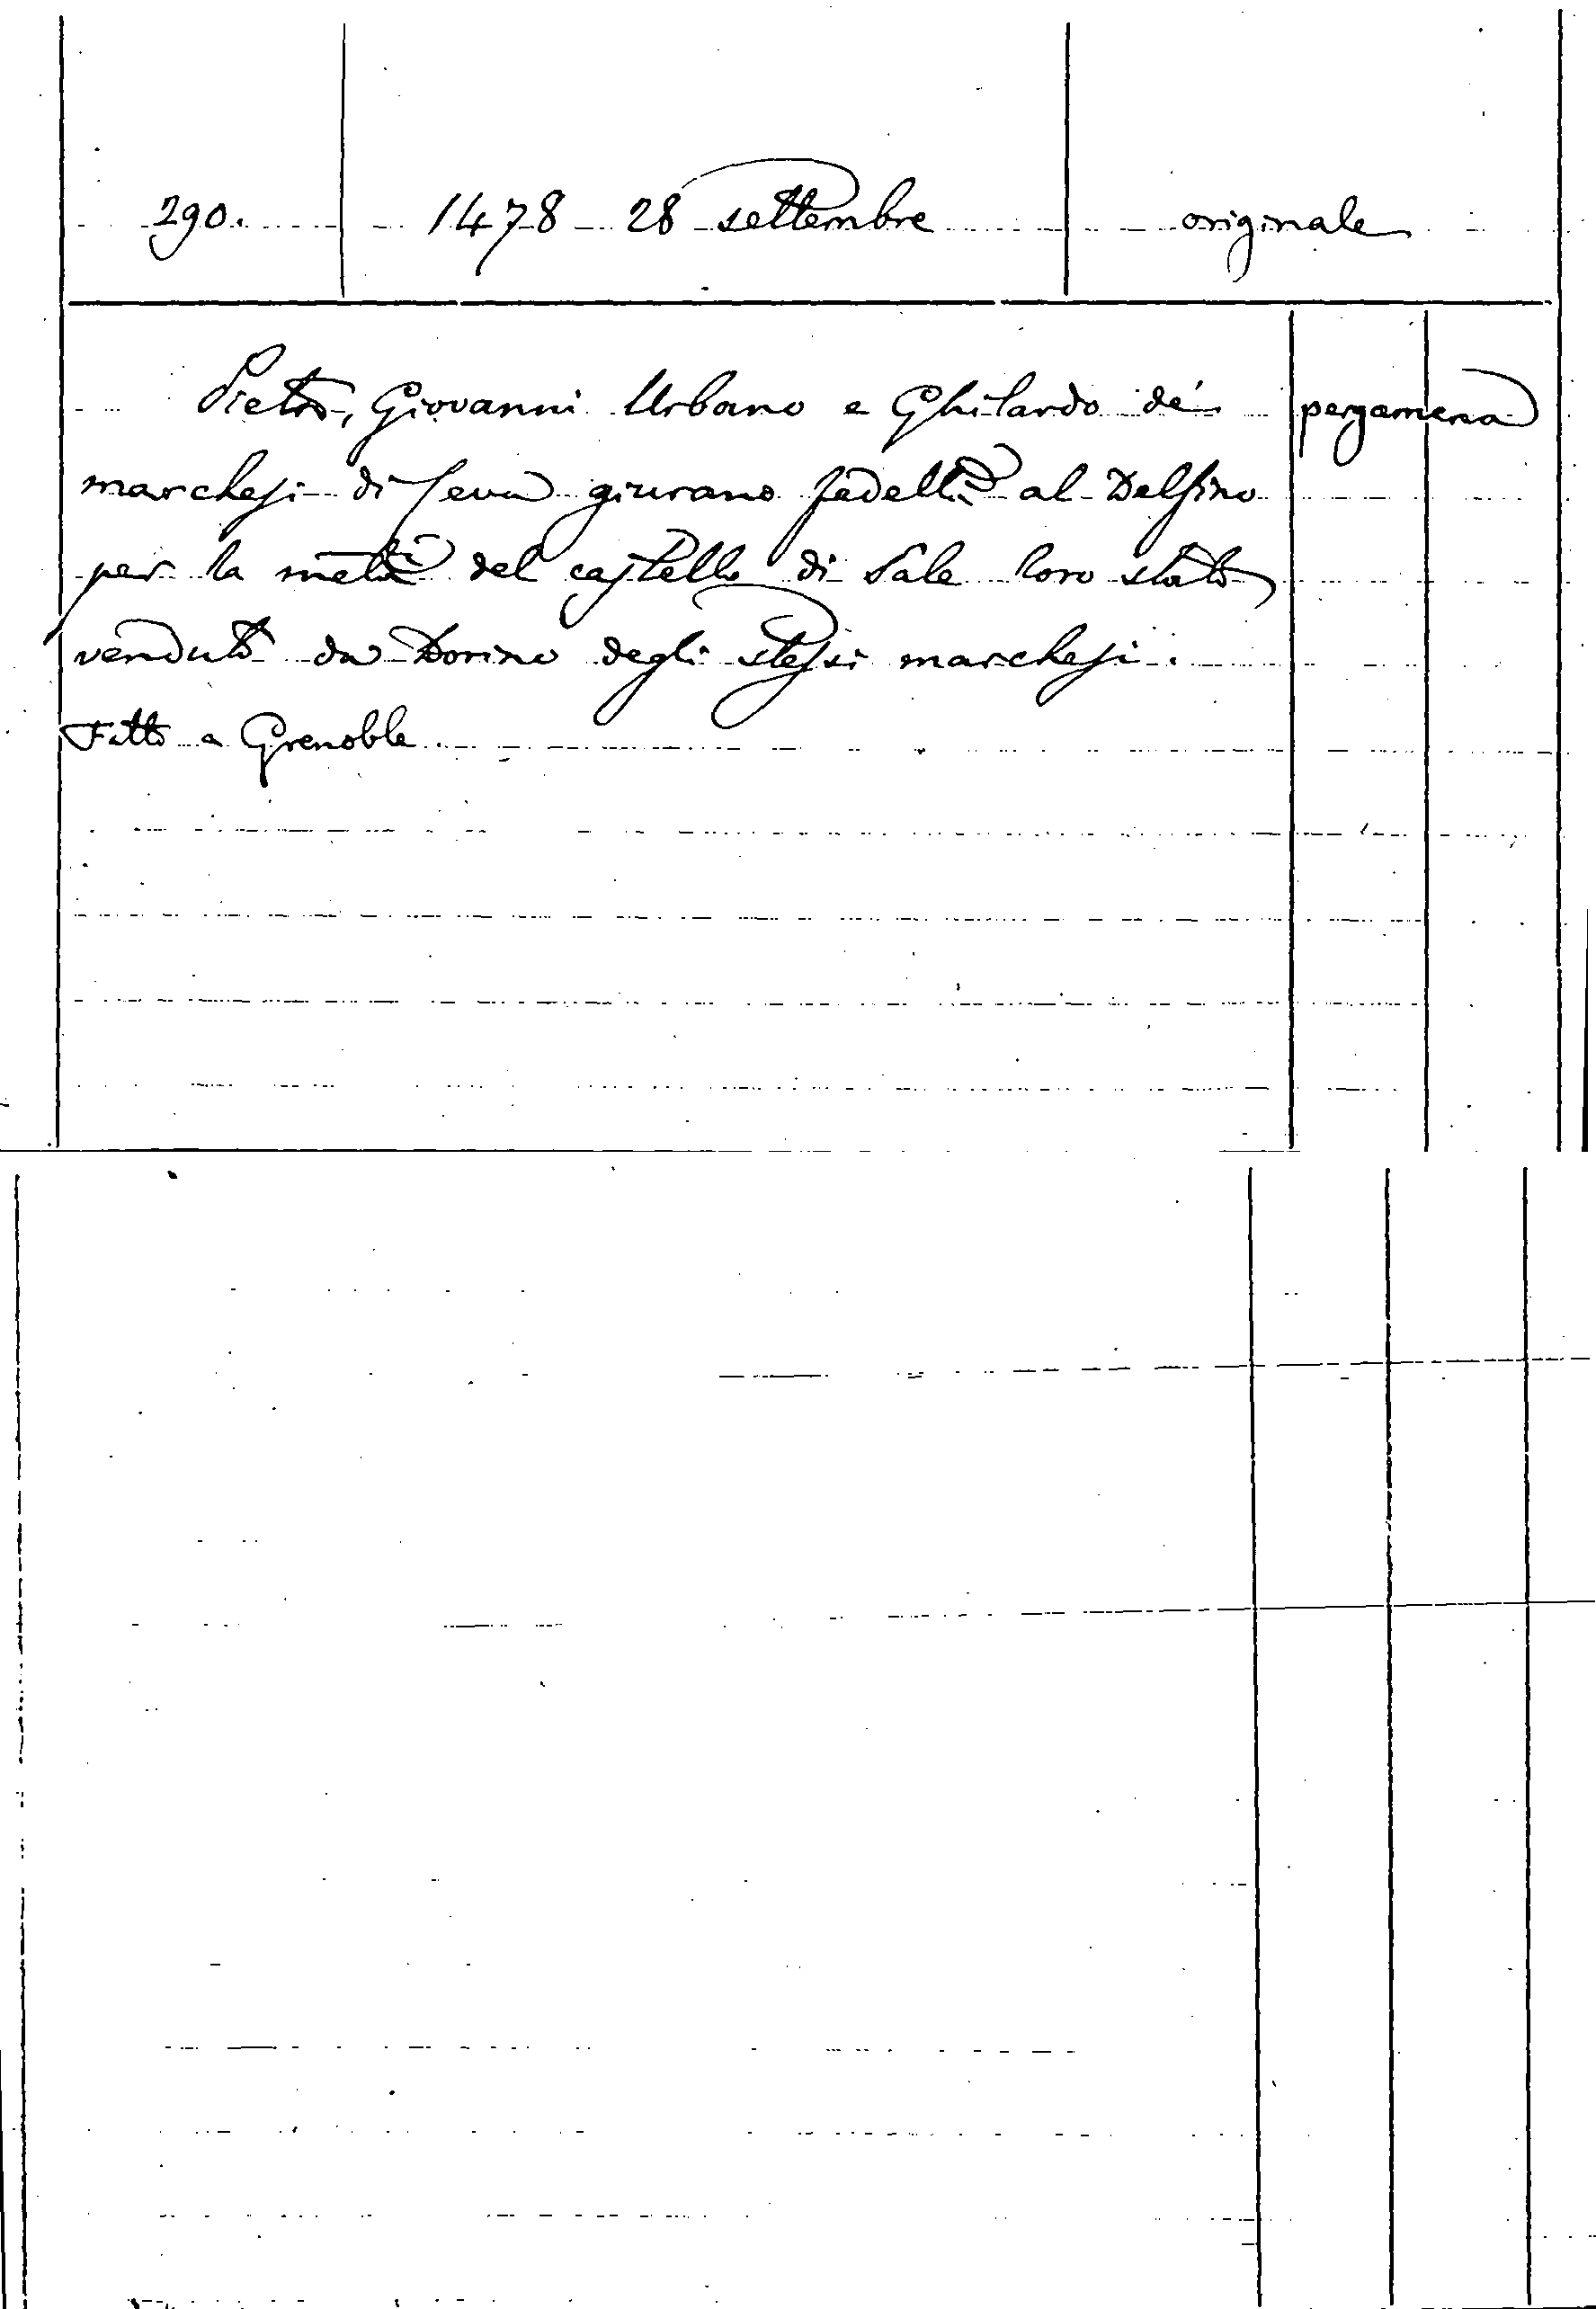 290. 1478 28 settembre originale
Pietro, Giovanni Urbano e Ghilardo de' pergamena
marchesi di Ceva giurano fedeltà al Delfino
per la metà del castello di Sale loro stato
venduto da Dorino degli stessi marchesi.
Fatto a Grenoble.